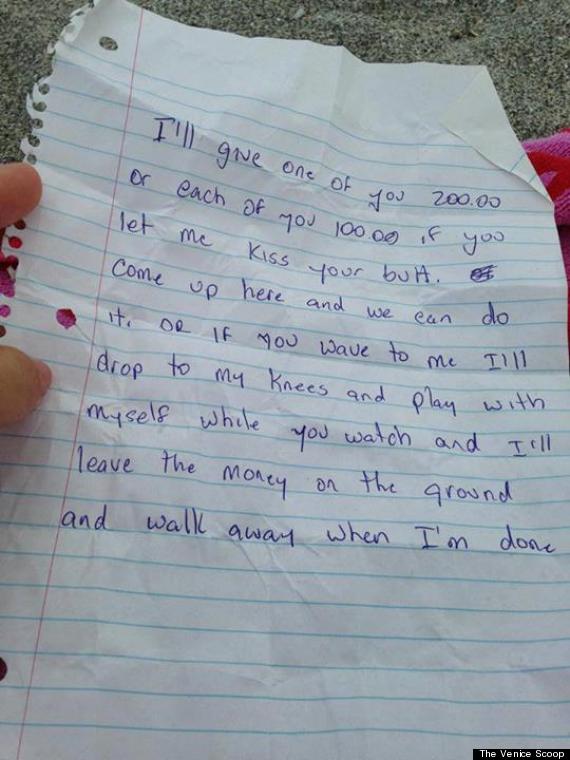 I'll give one of you 200.00
or each of you 100.00 if you
let me kiss your butt.
come up here and we can do
it. or if you wave to me I'll
drop to my knees and play with
myself while you watch and I'll
leave the money on the ground
and walk away when I'm done
The Venice Scoop